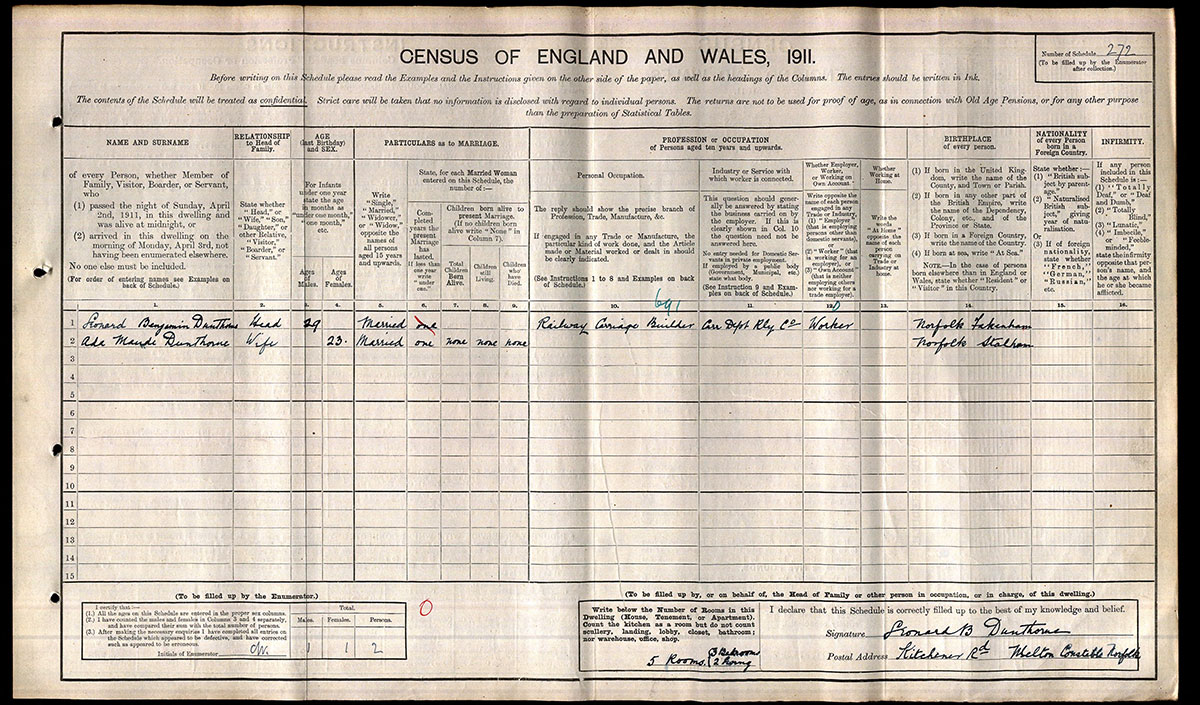 CENSUS OF ENGLAND AND WALES, 1911.
Number of Schedule 272
(To be filled up by the Enumerator
after collection.)
Before writing on this Schedule please read the Examples and the Instructions given on the other side of the paper, as well as the headings of the Columns. The entries should be written in Ink.
The contents of the Schedule will be treated as confidential. Strict care will be taken that no information is disclosed with regard to individual persons. The returns are not to be used for proof of age, as in connection with Old Age Pensions, or for any other purpose
than the preparation of Statistical Tables.
NAME AND SURNAME
of every Person, whether Member of
Family, Visitor, Boarder, or Servant,
who
(1) passed the night of Sunday, April
2nd, 1911, in this dwelling and
was alive at midnight, or
(2) arrived in this dwelling on the
morning of Monday, April 3rd, not
having been enumerated elsewhere.
No one else must be included.
(For order of entering names see Examples on
back of Schedule.)
1.
RELATIONSHIP
to Head of
Family.
State whether
"Head," or
"Wife," "Son,"
"Daughter," or
other Relative,
"Visitor,"
"Boarder," or
"Servant."
2.
AGE
(last Birthday)
and SEX.
For Infants
under one year
state the age
in months as
"under one month,"
"one month,"
etc.
Ages
of
Males.
3.
Ages
of
Females.
4.
PARTICULARS as to MARRIAGE.
Write
"Single,"
"Married,"
"Widower,"
or "Widow,"
opposite the
names of
all persons
aged 15 years
and upwards.
5.
State, for each Married Woman
entered on this Schedule, the
number of:—
Com-
pleted
years the
present
Marriage
has
lasted.
If less than
one year
write
"under
one."
6.
Children born alive to
present Marriage.
(If no children born
alive write "None" in
Column 7).
Total
Children
Born
Alive.
7.
Children
still
Living.
8.
Children
who
have
Died.
9.
PROFESSION or OCCUPATION
of Persons aged ten years and upwards.
Personal Occupation.
The reply should show the precise branch of
Profession, Trade, Manufacture, &c.
If engaged in any Trade or Manufacture, the
particular kind of work done, and the Article
made or Material worked or dealt in should
be clearly indicated.
(See Instructions 1 to 8 and Examples on back
of Schedule.)
10.
691
Industry or Service
with which worker is connected.
This question should gener-
ally be answered by stating
the business carried on by
the employer. If this is
clearly shown in Col. 10
the question need not be
answered here.
No entry needed for Domestic Ser-
vants in private employment.
If employed by a public body
(Government, Municipal, etc.)
state what body.
(See Instruction 9 and Exam-
ples on back of Schedule.)
11.
Whether Employer,
Worker,
or Working on
Own Account.
Write opposite the
name of each person
engaged in any
Trade or Industry,
(1) "Employer"
(that is employing
persons other than
domestic servants),
or
(2) "Worker" (that
is working for an
employer), or
(3) "Own Account"
(that is neither
employing others
nor working for a
trade employer).
12.
Whether
Working at
Home.
Write the
words
"At Home"
opposite the
name of each
person
carrying on
Trade or
Industry at
home.
13.
BIRTHPLACE
of every person.
(1) If born in the United King-
dom, write the name of the
County, and Town or Parish.
(2) If born in any other part of
the British Empire, write
the name of the Dependency,
Colony, etc., and of the
Province or State.
(3) If born in a Foreign Country,
write the name of the Country.
(4) If born at sea, write "At Sea."
NOTE.—In the case of persons
born elsewhere than in England or
Wales, state whether "Resident" or
"Visitor" in this Country.
14.
NATIONALITY
of every Person
born in a
Foreign Country.
State whether:—
(1) "British sub-
ject by parent-
age,"
(2) "Naturalised
British sub-
ject," giving
year of natu-
ralisation.
Or
(3) If of foreign
nationality,
state whether
"French,"
"German,"
"Russian,"
etc.
15.
INFIRMITY.
If any person
included in this
Schedule is:—
(1) "Totally
Deaf," or "Deaf
and Dumb,"
(2) "Totally
Blind,"
(3) "Lunatic,"
(4) "Imbecile,"
or "Feeble-
minded,"
state the infirmity
opposite that per-
son's name, and
the age at which
he or she became
afflicted.
16.
1 Leonard Benjamin Dunthorne Head 29 Married one Railway Carriage Builder Carr Dept Rly Co Worker Norfolk Fakenham
2 Ada Maude Dunthorne Wife 23. Married one none none none Norfolk Stalham
3
4
5
6
7
8
9
10
11
12
13
14
15
(To be filled up by the Enumerator.)
I certify that:—
(1.) All the ages on this Schedule are entered in the proper sex columns.
(2.) I have counted the males and females in Columns 3 and 4 separately,
and have compared their sum with the total number of persons.
(3.) After making the necessary enquiries I have completed all entries on
the Schedule which appeared to be defective, and have corrected
such as appeared to be erroneous.
Initials of Enumerator
Total.
Males. Females. Persons.
1 1 2
0
(To be filled up by, or on behalf of, the Head of Family or other person in occupation, or in charge, of this dwelling.)
Write below the Number of Rooms in this
Dwelling (House, Tenement, or Apartment).
Count the kitchen as a room but do not count
scullery, landing, lobby, closet, bathroom;
nor warehouse, office, shop.
5 Rooms. 3 Bedrooms
2 Living
I declare that this Schedule is correctly filled up to the best of my knowledge and belief.
Signature Leonard B Dunthorne
Postal Address Kitchener Rd Melton Constable Norfolk